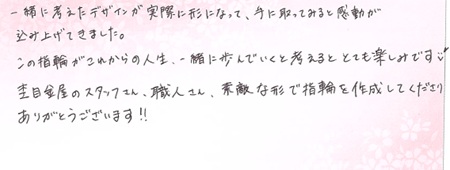 一緒に考えたデザインが実際に形になって、手に取ってみると感動が
込み上げてきました。
この指輪がこれからの人生、一緒に歩んでいくと考えるととても楽しみです
杢目金屋のスタッフさん、職人さん、素敵な形で指輪を作成してくださり
ありがとうございます!!